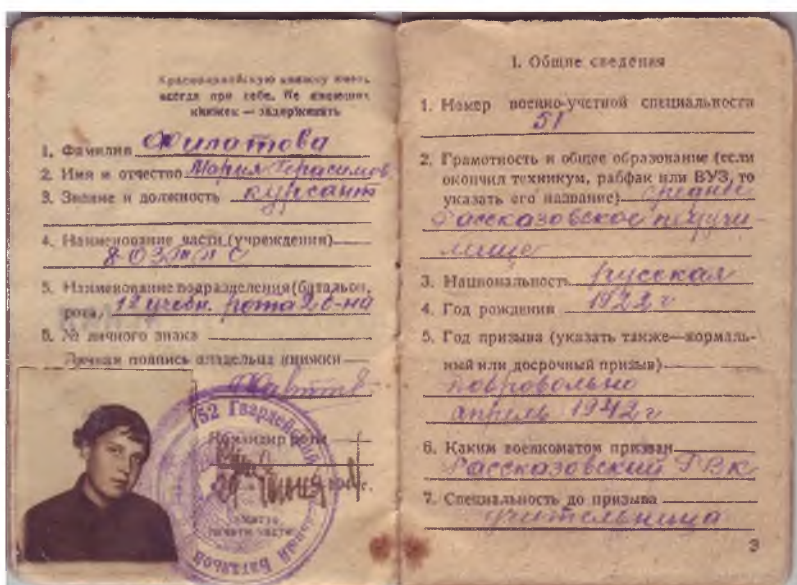 Красноармейскую книжку иметь
всегда при себе. Не имеющих
книжек — задерживать
1. Фамилия Филатова
2. Имя и отчество Мария Герасимов
3. Звание и должность курсант
4. Наименование части (учреждения)
5. Наименование подразделения (батальон,
рота) 12 учебн. рота 2 б-на
6. № личного знака
Личная подпись владельца книжки
52 Гвардейский
Командир роты
Место
печати части
ный Батальон
I. Общие сведения
1. Номер военно-учетной специальности
51
2. Грамотность и общее образование (если
окончил техникум, рабфак или ВУЗ, то
указать его название) среднее
Рассказовское педучи-
лище
3. Национальность русская
4. Год рождения 1922 г
5. Год призыва (указать также—нормаль-
ный или досрочный призыв)
добровольно
апрель 1942 г
6. Каким военкоматом призван
Рассказовский РВК
7. Специальность до призыва
учительница
3